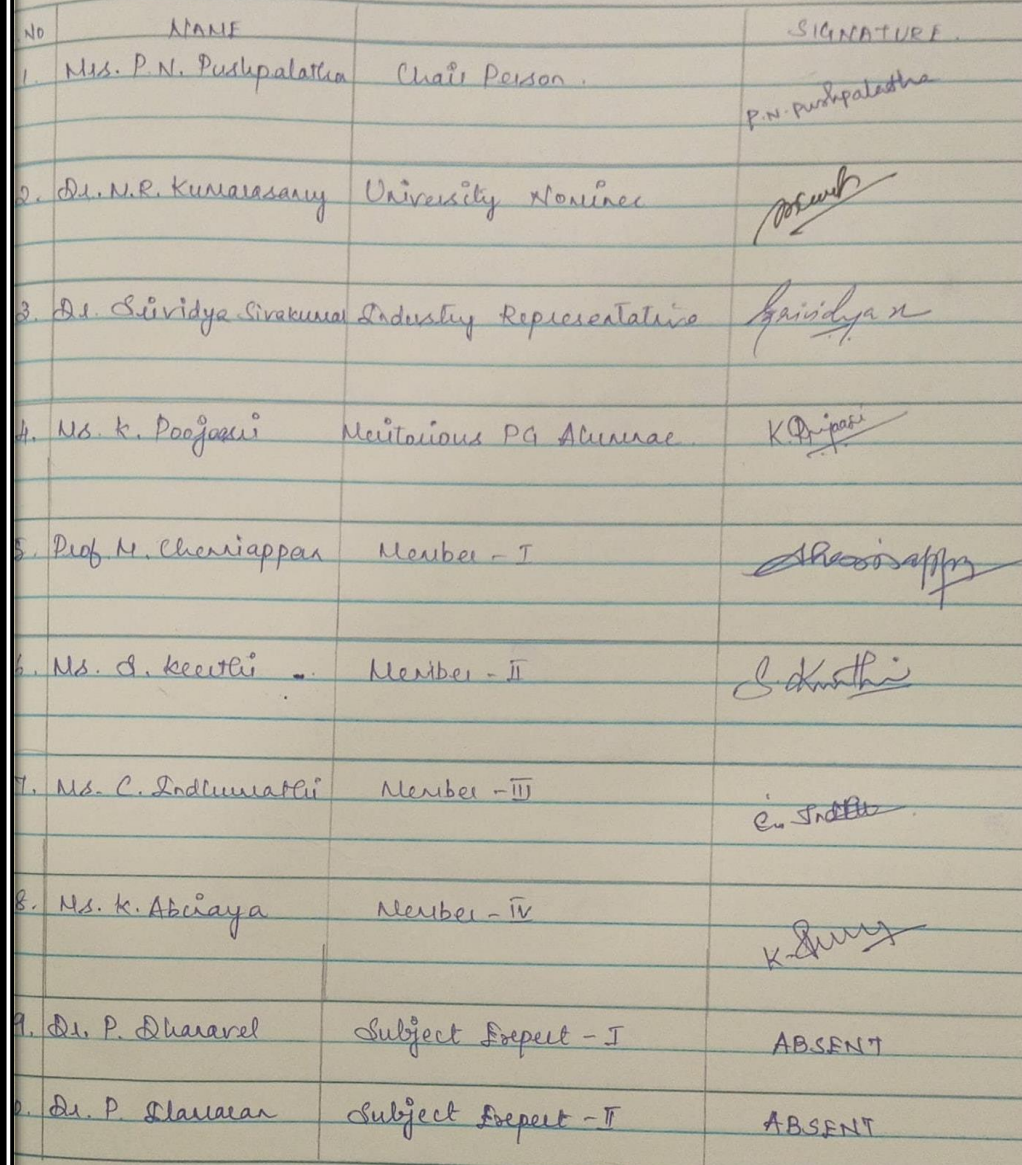 NO NAME SIGNATURE.
1. Mrs. P.N. Pushpalatha Chair Person.
P.N. Pushpalatha
2. Dr. N.R. Kumarasamy University Nominee
3. Dr. Srividya Sivakumar Industry Representative Srividya
4. Ms. K. Meritorious PG Alumnae. K.
5. Prof M. Chenniappan Member - I
6. Ms. S. Keerthi Member - II S.
7. Ms. C. Indhumathi Member - III
C. Indhu
8. Ms. K. Member - IV
K.
9. Dr. P. Dhanavel Subject Expert - I ABSENT
Dr. P. Subject Expert - II ABSENT